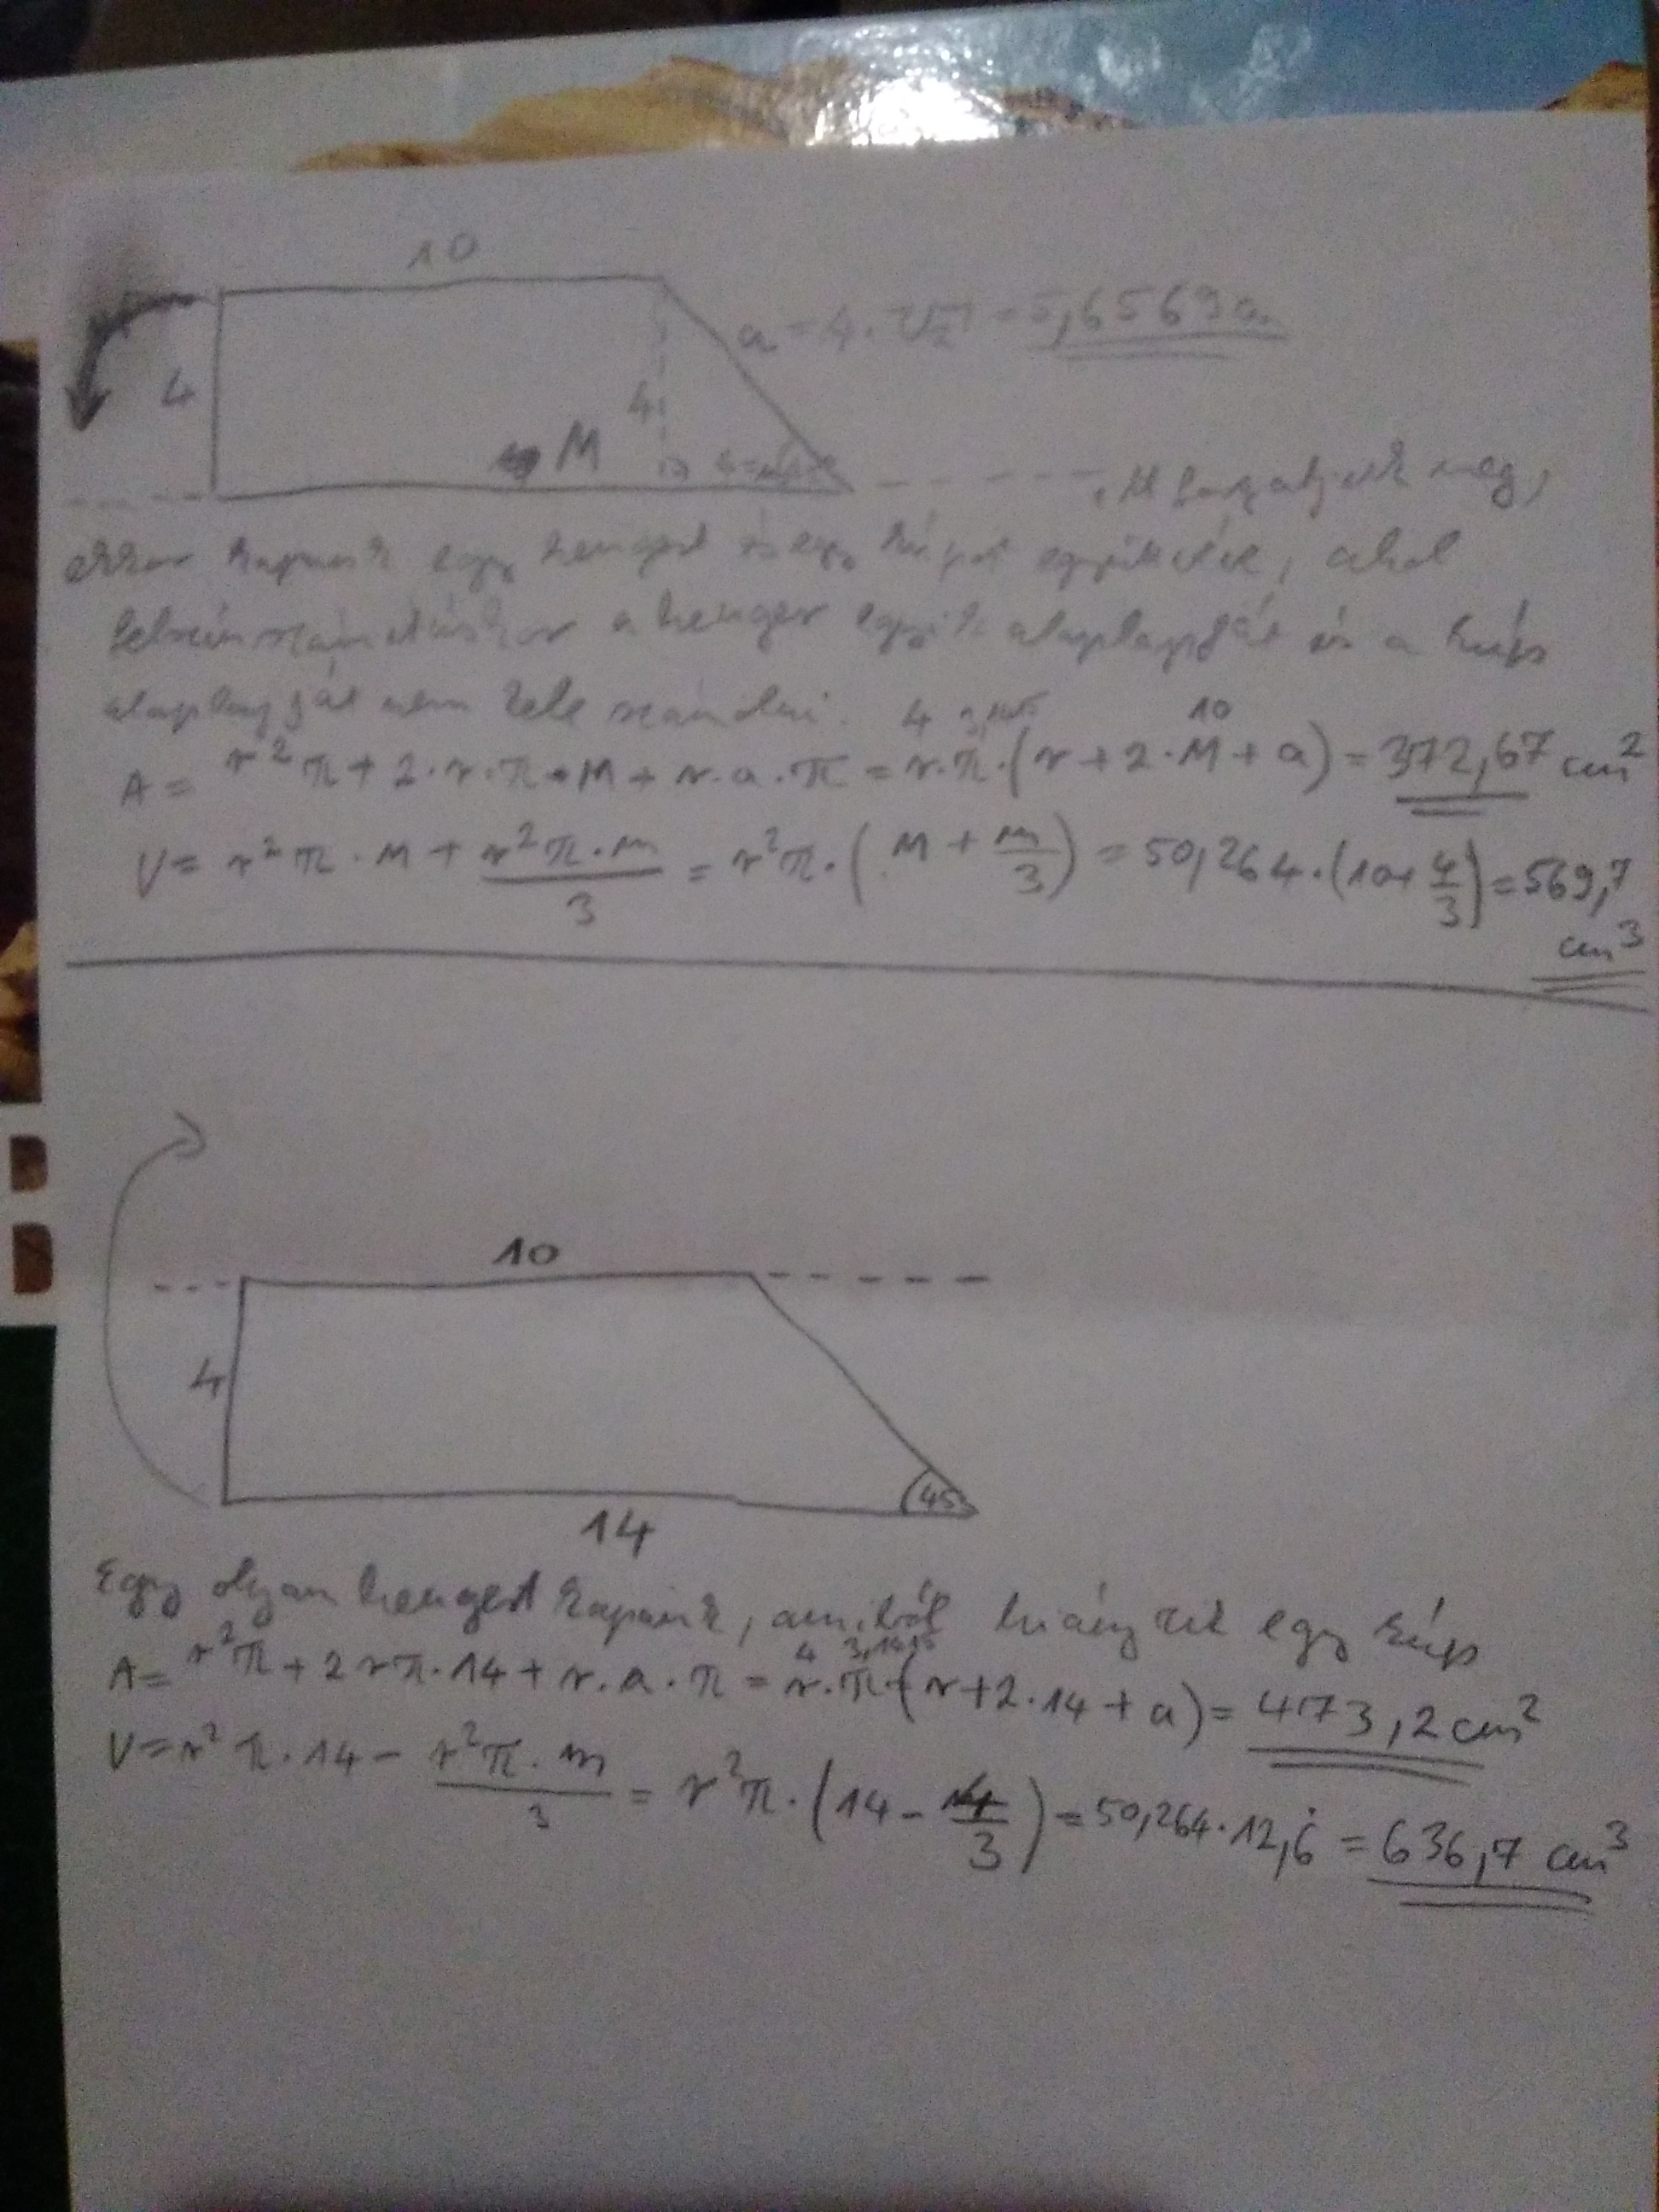 10
a = 4 · √2 = 5,6569 cm
4
4
M
4=m
itt forgatjuk meg,
ekkor kapunk egy hengert és egy kúpot együtt, ahol
felszínszámításkor a henger egyik alaplapját és a kúp
alaplapját nem kell számolni.
4 3,1415 10
A = r²π + 2·r·π·M + r·a·π = r·π·(r + 2·M + a) = 372,67 cm²
V = r²π·M + r²π·m/3 = r²π·(M + m/3) = 50,264·(10+4/3) = 569,7
cm³
10
4
45°
14
Egy olyan hengert kapunk, amiből hiányzik egy kúp
4 3,1415
A = r²π + 2rπ·14 + r·a·π = r·π·(r+2·14+a) = 473,2 cm²
V = r²π·14 - r²π·m/3 = r²π·(14 - 4/3) = 50,264·12,6̇ = 636,7 cm³